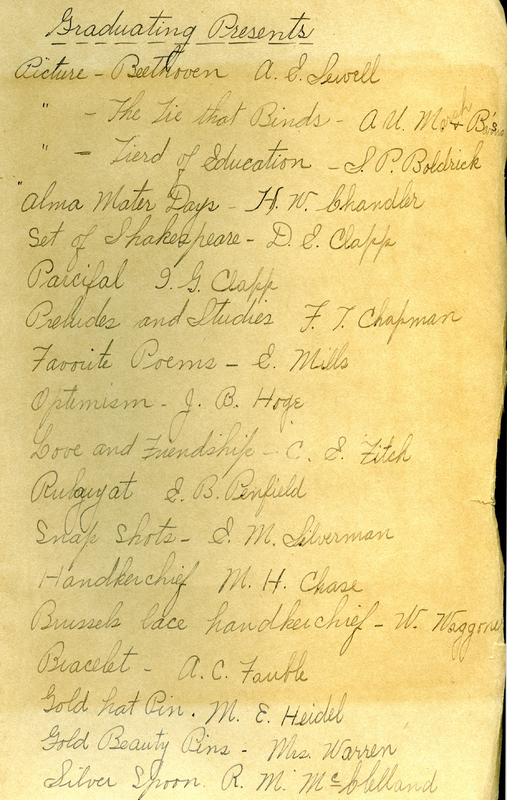 Graduating Presents
Picture - Beethoven A. E. Sewell
" - The Tie that Binds - A U. Marsh +
" - Tierd of Education - S. P. Boldrick
"Alma Mater Days - H. W. Chandler
Set of Shakespeare - D. E. Clapp
Parcifal I. G. Clapp
Preludes and Studies F. T. Chapman
Favorite Poems - E. Mills
Optimism - J. B. Hoge
Love and Friendship - C. E. Fitch
Rubayyat E. B. Penfield
Snap Shots - E. M. Silverman
Handkerchief M. H. Chase
Brussels lace handkerchief - W. Waggoner
Bracelet - A. C. Fauble
Gold hat Pin. M. E. Heidel
Gold Beauty Pins - Mrs. Warren
Silver Spoon. R. M. McClelland